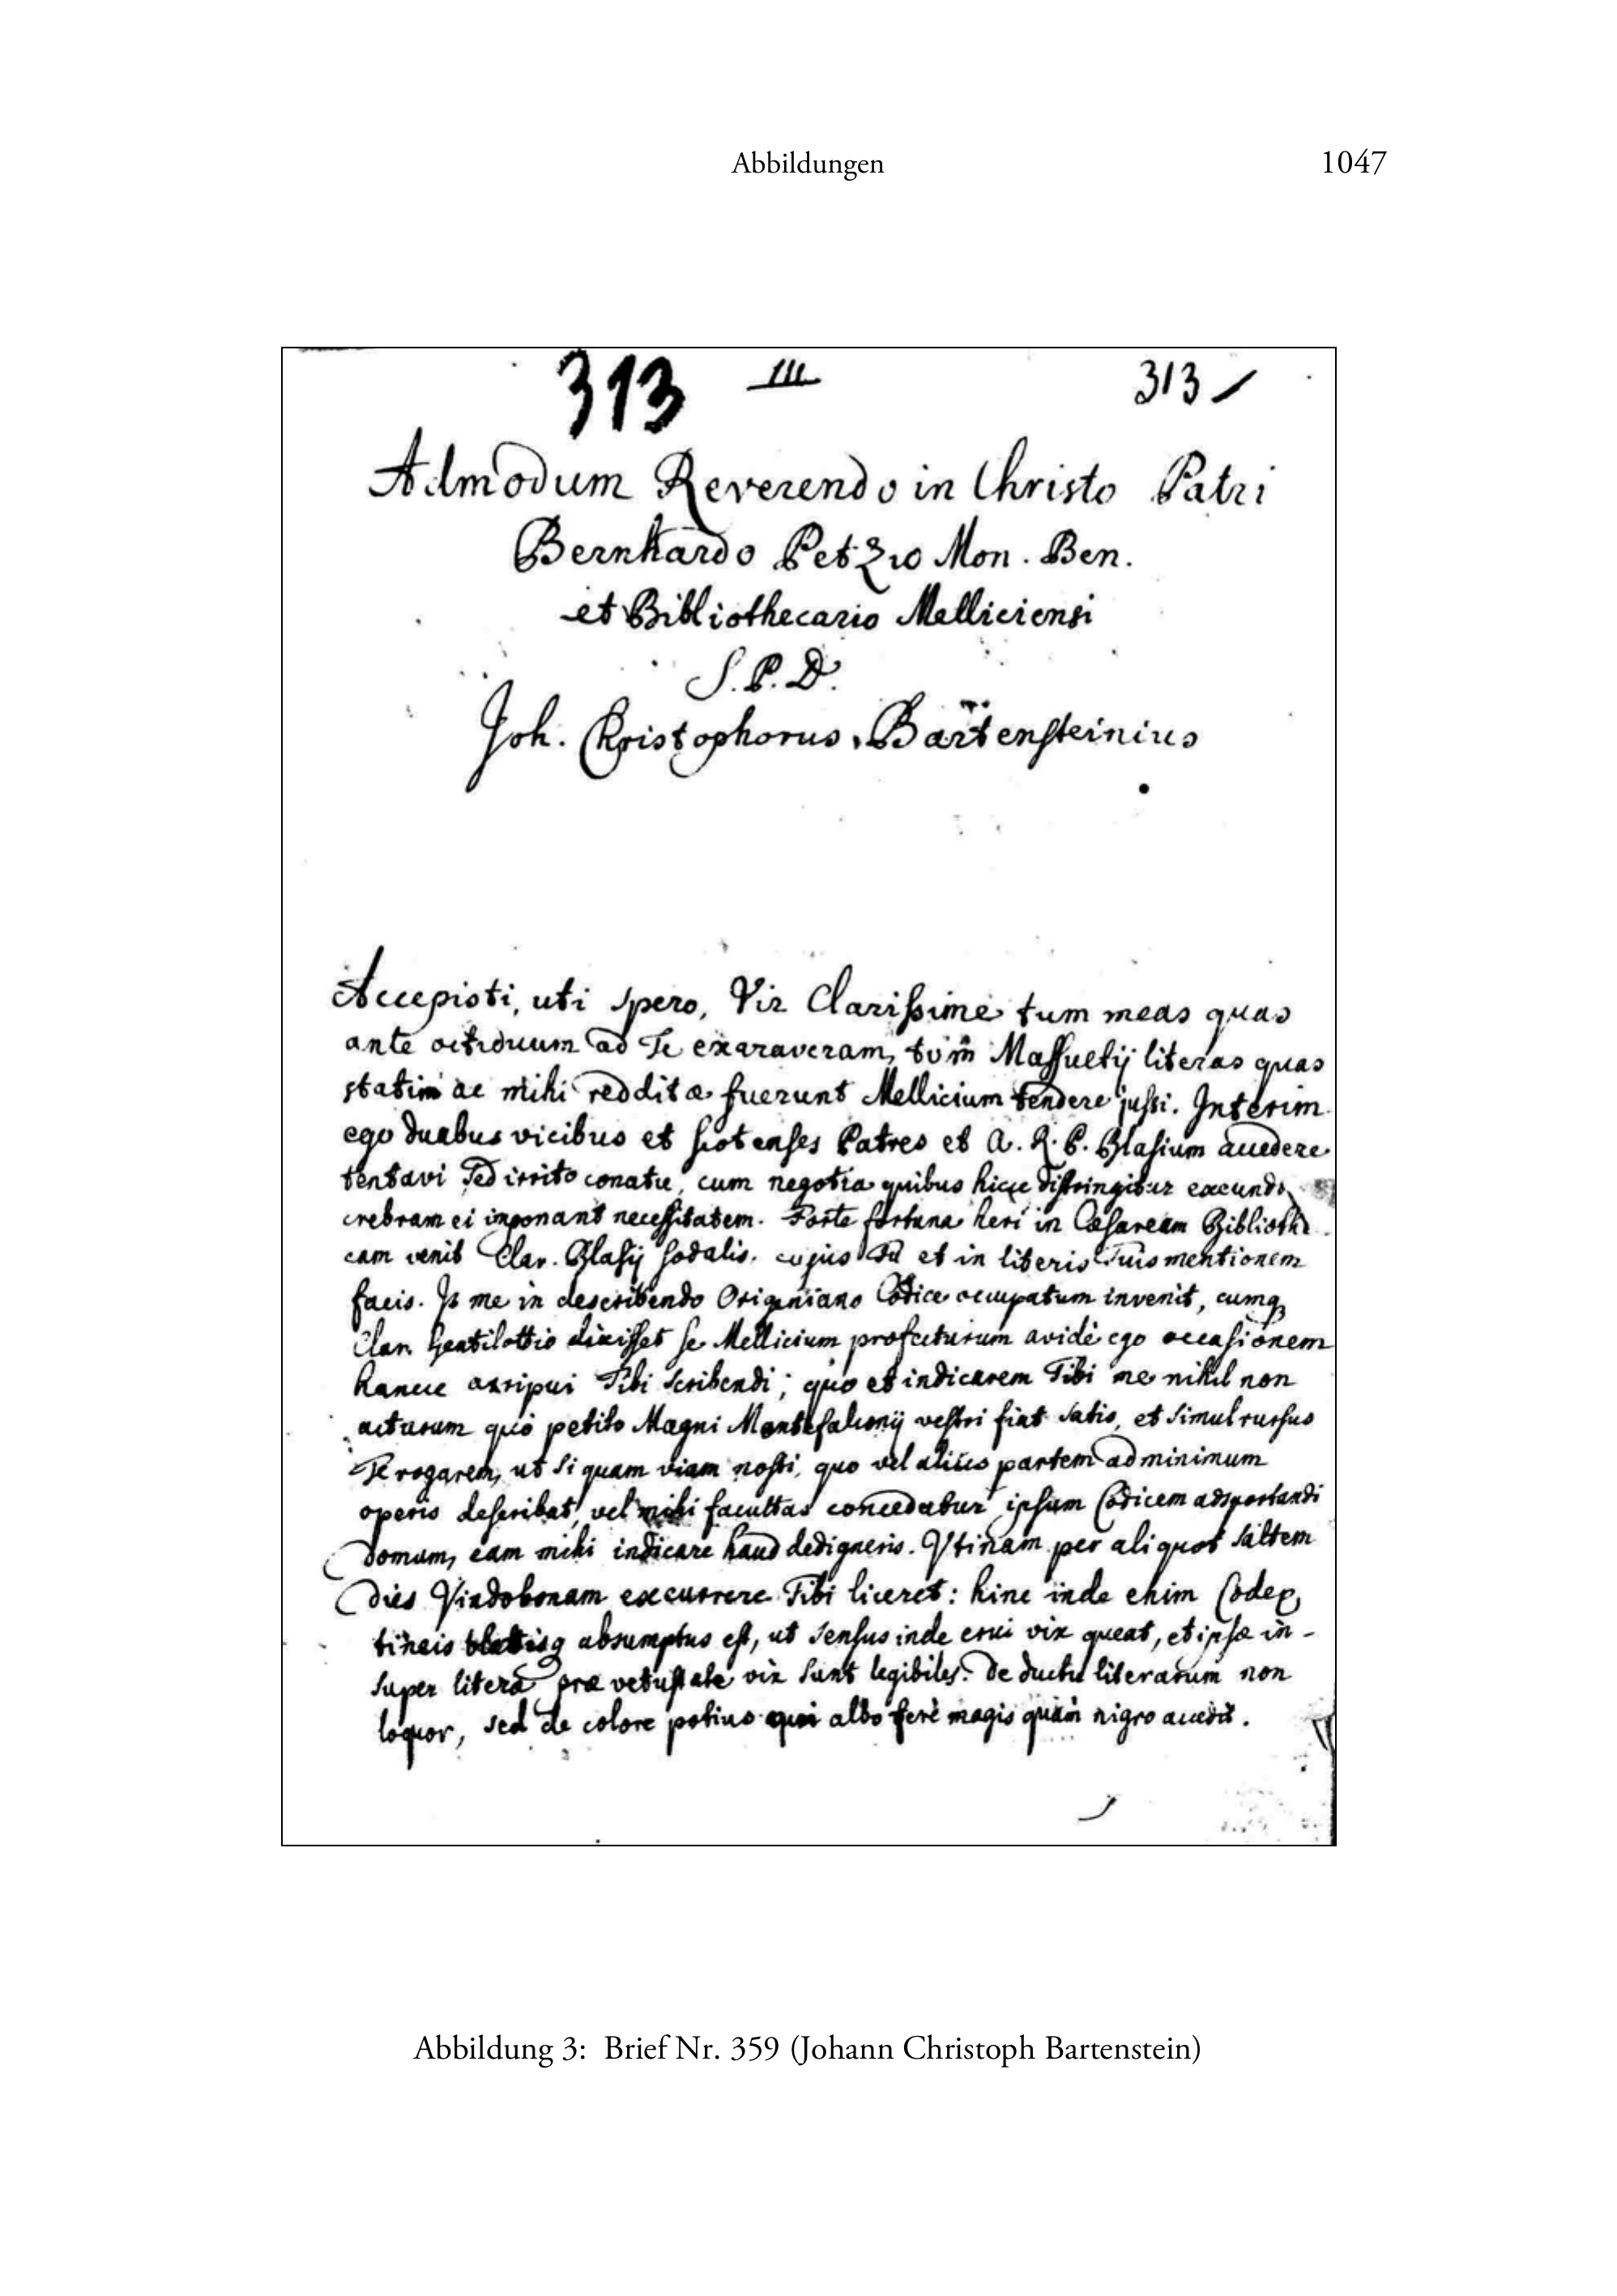 Abbildungen 1047
313 III 313
Admodum Reverendo in Christo Patri
Bernhardo Petzio Mon. Ben.
et Bibliothecario Melliciensi
S. P. D.
Joh. Christophorus Bartensteinius
Accepisti, uti spero, Vir Clarissime tum meas quas
ante octiduum ad Te exaraveram, tum Massuetij literas quas
statim ac mihi redditæ fuerunt Mellicium tendere jussi. Interim
ego duabus vicibus et Scotenses Patres et A. R. P. Blasium accedere
tentavi sed irrito conatu, cum negotia quibus hicce distringitur exeundi
crebram ei imponant necessitatem. Forte fortuna heri in Cæsaream Biblioth
cam venit Clar. Blasij sodalis, cujus Tu et in literis Tuis mentionem
facis. Is me in describendo Origeniano Codice occupatum invenit, cumq
Clar. Gentilottio dixisset se Mellicium profecturum avidè ego occasionem
hancce arripui Tibi scribendi; quo et indicarem Tibi me nihil non
acturum quò petito Magni Montefalconij vestri fiat satis, et simul rursus
Te rogarem, ut si quam viam nosti, quo vel alius partem ad minimum
operis describat, vel mihi facultas concedatur ipsum Codicem adsportandi
domum, eam mihi indicare haud dedigneris. Vtinam per aliquot saltem
dies Vindobonam excurrere Tibi liceret: hinc inde enim Codex
tineis blattisq absumptus est, ut sensus inde erui vix queat, et ipsæ in-
super literæ præ vetustate vix sunt legibiles. De ductu literarum non
loquor, sed de colore potius qui albo ferè magis quàm nigro accedit.
Abbildung 3: Brief Nr. 359 (Johann Christoph Bartenstein)